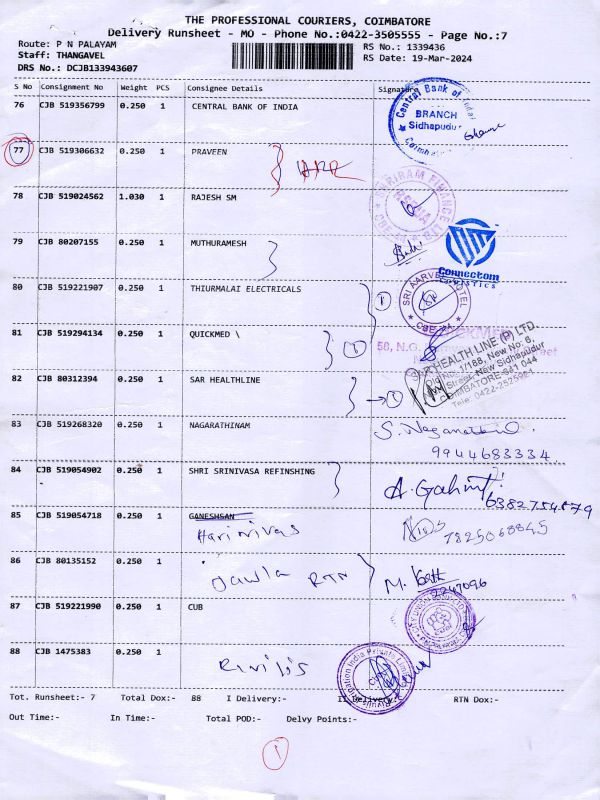 THE PROFESSIONAL COURIERS, COIMBATORE
Delivery Runsheet - MO - Phone No.:0422-3505555 - Page No.:7
Route: P N PALAYAM
RS No.: 1339436
Staff: THANGAVEL
RS Date: 19-Mar-2024
DRS No.: DCJB133943607
S No Consignment No Weight PCS Consignee Details Signature
76 CJB 519356799 0.250 1 CENTRAL BANK OF INDIA
Central Bank of India
BRANCH
Sidhapudur
77 CJB 519306632 0.250 1 PRAVEEN
78 CJB 519024562 1.030 1 RAJESH SM
79 CJB 80207155 0.250 1 MUTHURAMESH
Connectom
LOGISTICS
80 CJB 519221907 0.250 1 THIURMALAI ELECTRICALS
81 CJB 519294134 0.250 1 QUICKMED \
82 CJB 80312394 0.250 1 SAR HEALTHLINE
HEALTH LINE (P) LTD.
Old No: 1/188, New No: 6,
Street, New Sidhapudur
COIMBATORE-641 044
Tele: 0422-2525921
83 CJB 519268320 0.250 1 NAGARATHINAM
9944683334
84 CJB 519054902 0.250 1 SHRI SRINIVASA REFINSHING
6382754879
85 CJB 519054718 0.250 1 GANESHSAN
Harinivas
7825068845
86 CJB 80135152 0.250 1
2247096
87 CJB 519221990 0.250 1 CUB
88 CJB 1475383 0.250 1
Tot. Runsheet:- 7 Total Dox:- 88 I Delivery:- II Delivery:- RTN Dox:-
Out Time:- In Time:- Total POD:- Delvy Points:-
1